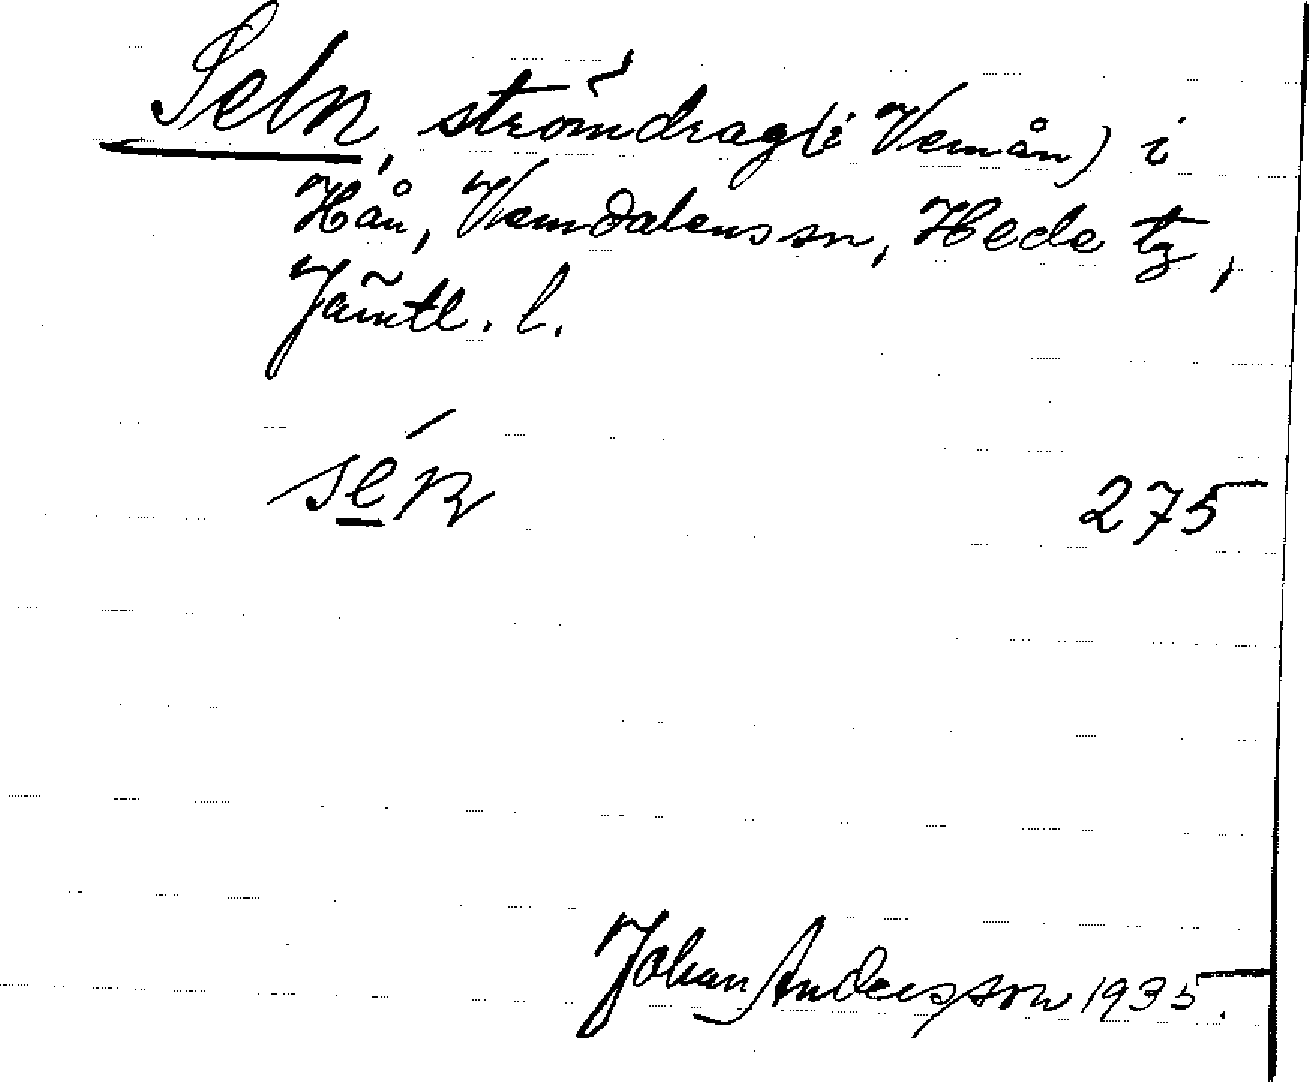 Seln, strömdrag (i Vemån) i
Hån, Vemdalens sn, Hede tg,
Jämtl. l.
275
Johan Andersson 1935.